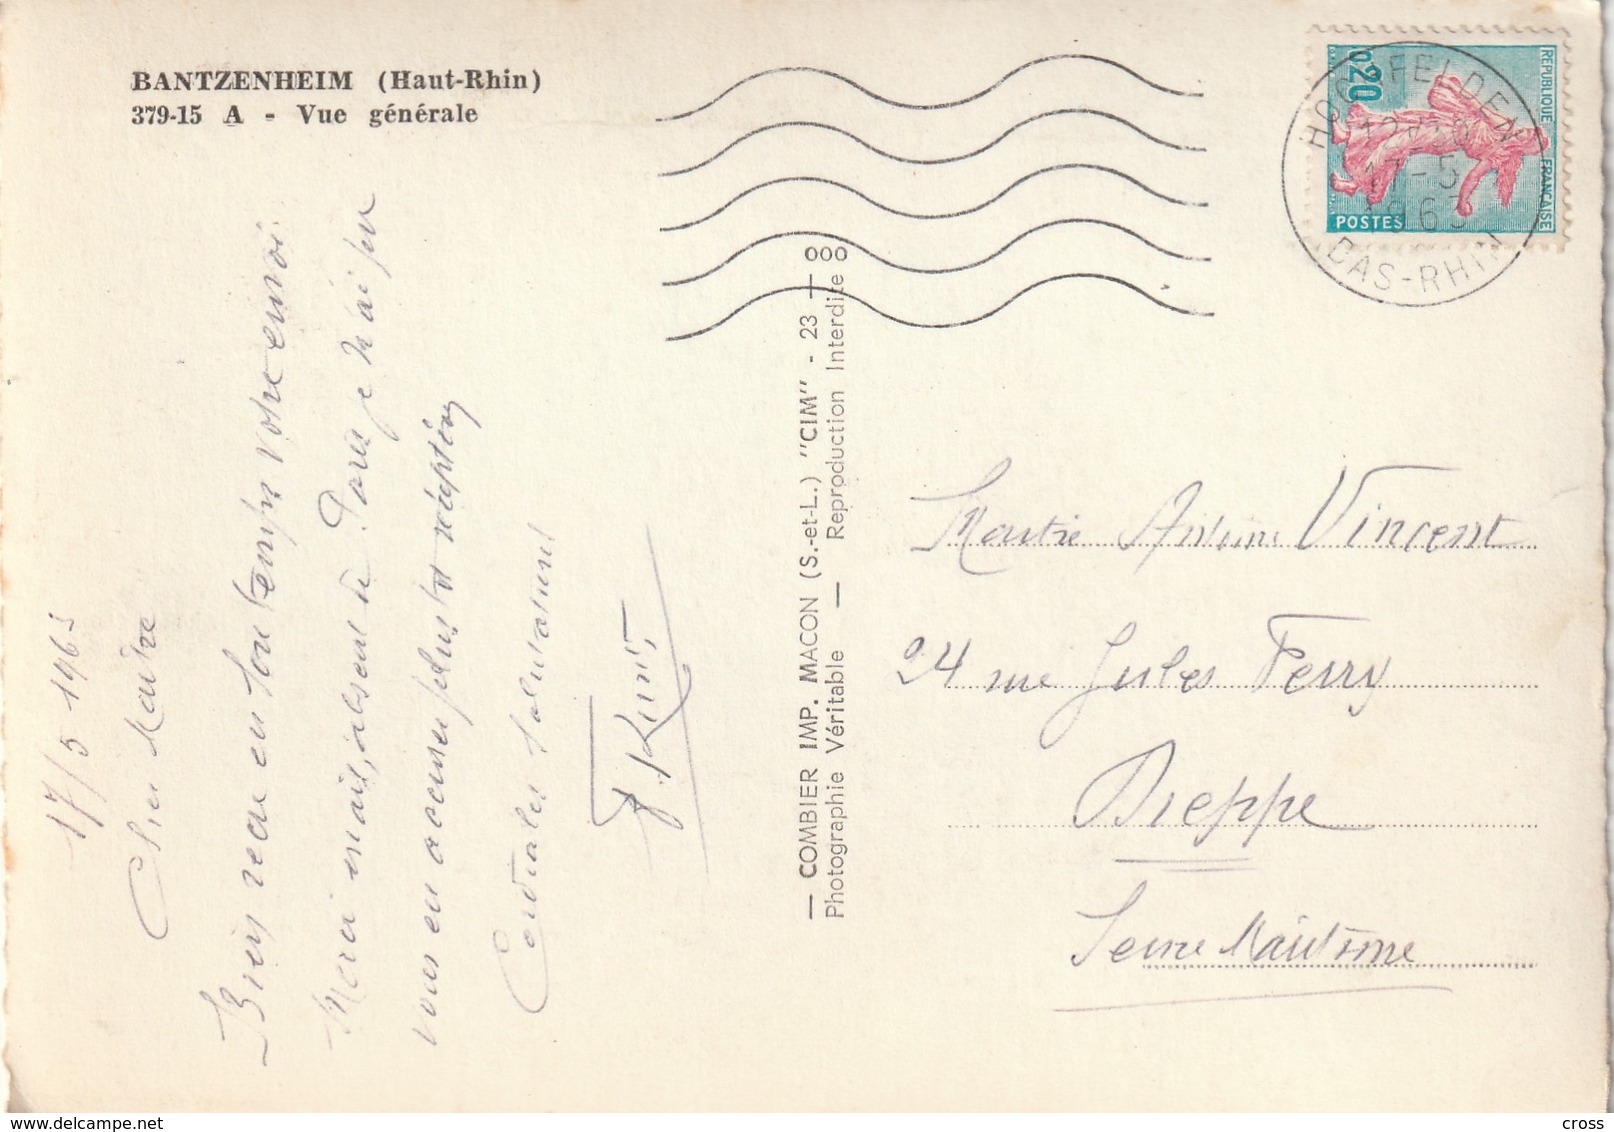 BANTZENHEIM (Haut-Rhin)
379-15 A - Vue générale
17/5 1963
Cher Maître
Bien reçu en son temps votre envoi
Merci mais, absent de Paris je n'ai pu
vous en accuser plus tôt réception
Cordiales salutations
— COMBIER IMP. MACON (S.-et-L.) "CIM" - 23 — ooo
Photographie Véritable — Reproduction Interdite
REPUBLIQUE FRANÇAISE
0,20
POSTES
HOCHFELDEN
17-5
1963
BAS-RHIN
Maître Antoine Vincent
24 rue Jules Ferry
Dieppe
Seine Maritime
delcampe.net
cross